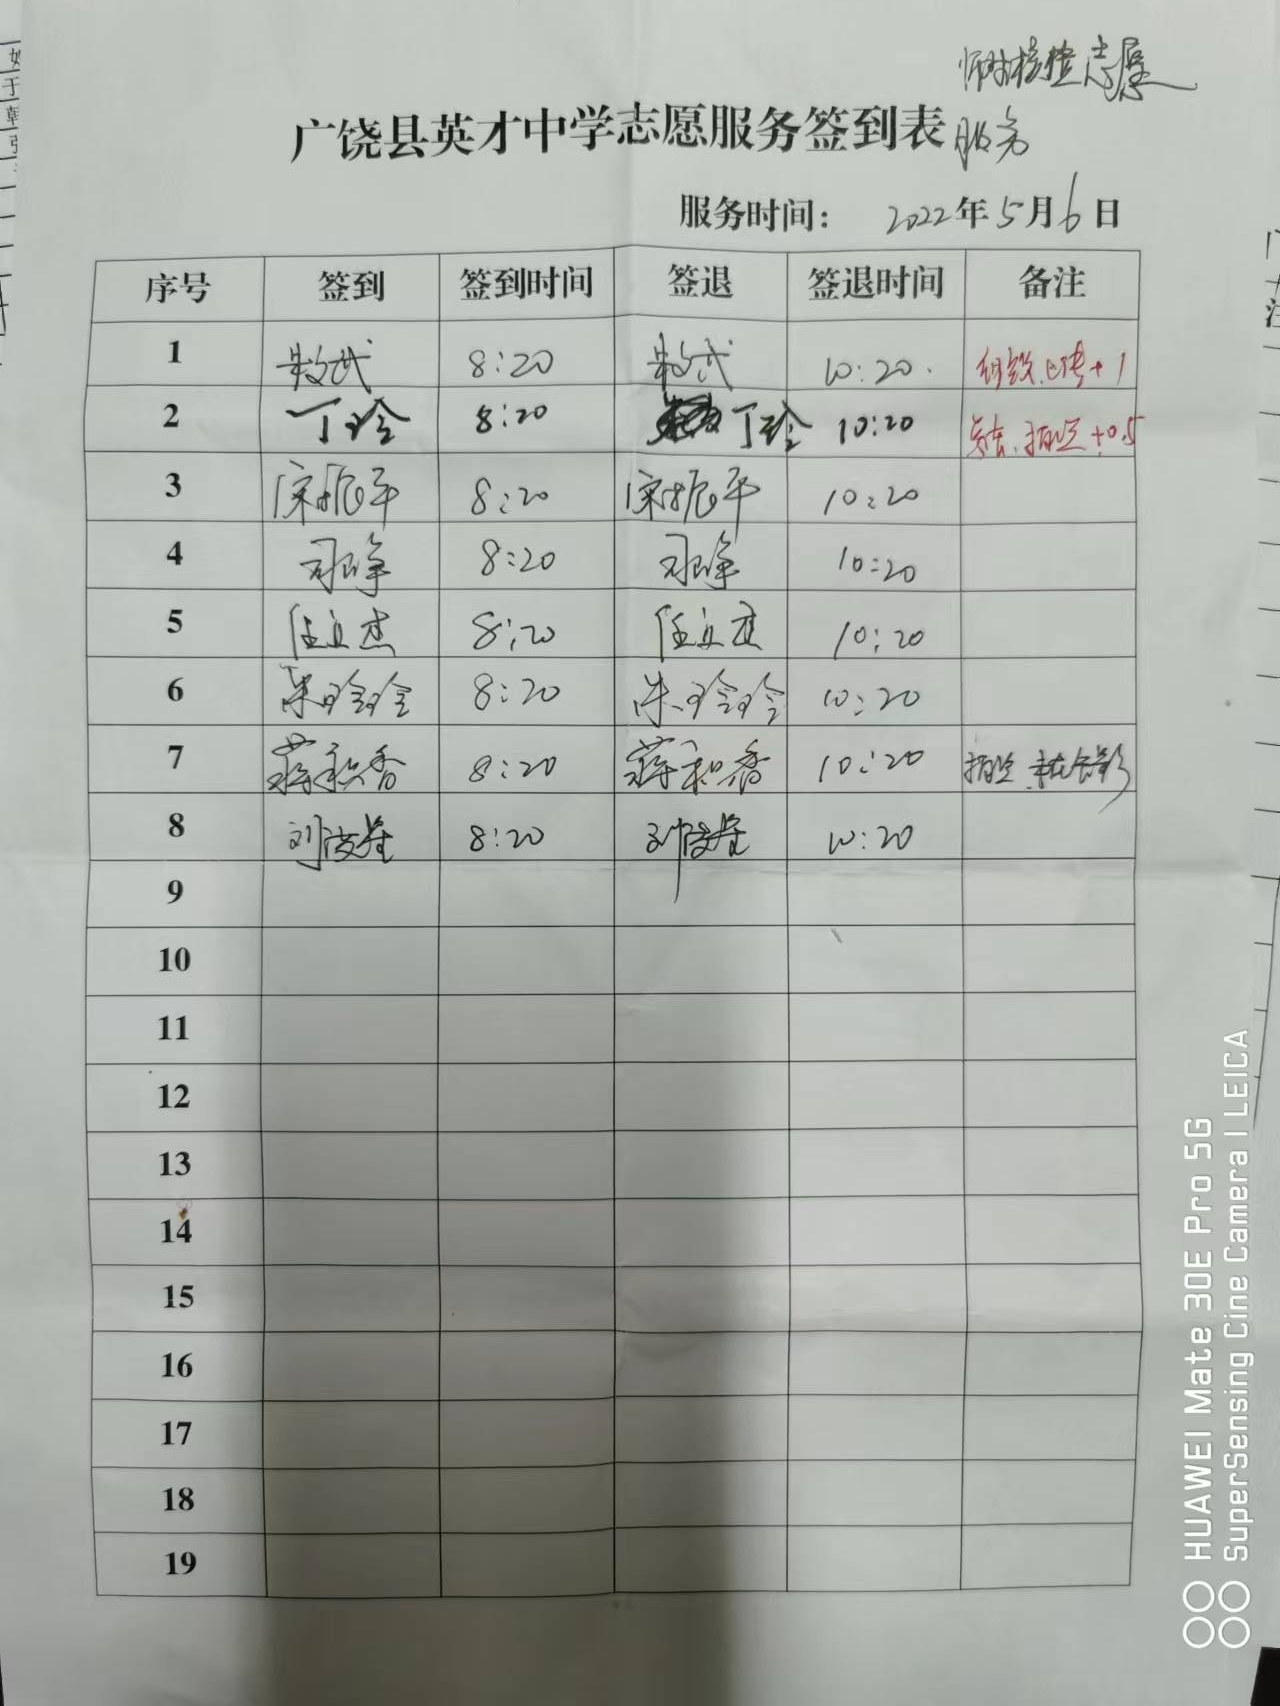 志愿
广饶县英才中学志愿服务签到表 服务
服务时间： 2022年5月6日
序号 签到 签到时间 签退 签退时间 备注
1 8:20 10:20 +1
2 丁玲 8:20 丁玲 10:20 +0.5
3 宋振平 8:20 宋振平 10:20
4 8:20 10:20
5 任立杰 8:20 任立杰 10:20
6 朱玲玲 8:20 朱玲玲 10:20
7 蒋和香 8:20 蒋和香 10:20 合影
8 8:20 10:20
9
10
11
12
13
14
15
16
17
18
19
HUAWEI Mate 30E Pro 5G
SuperSensing Cine Camera | LEICA